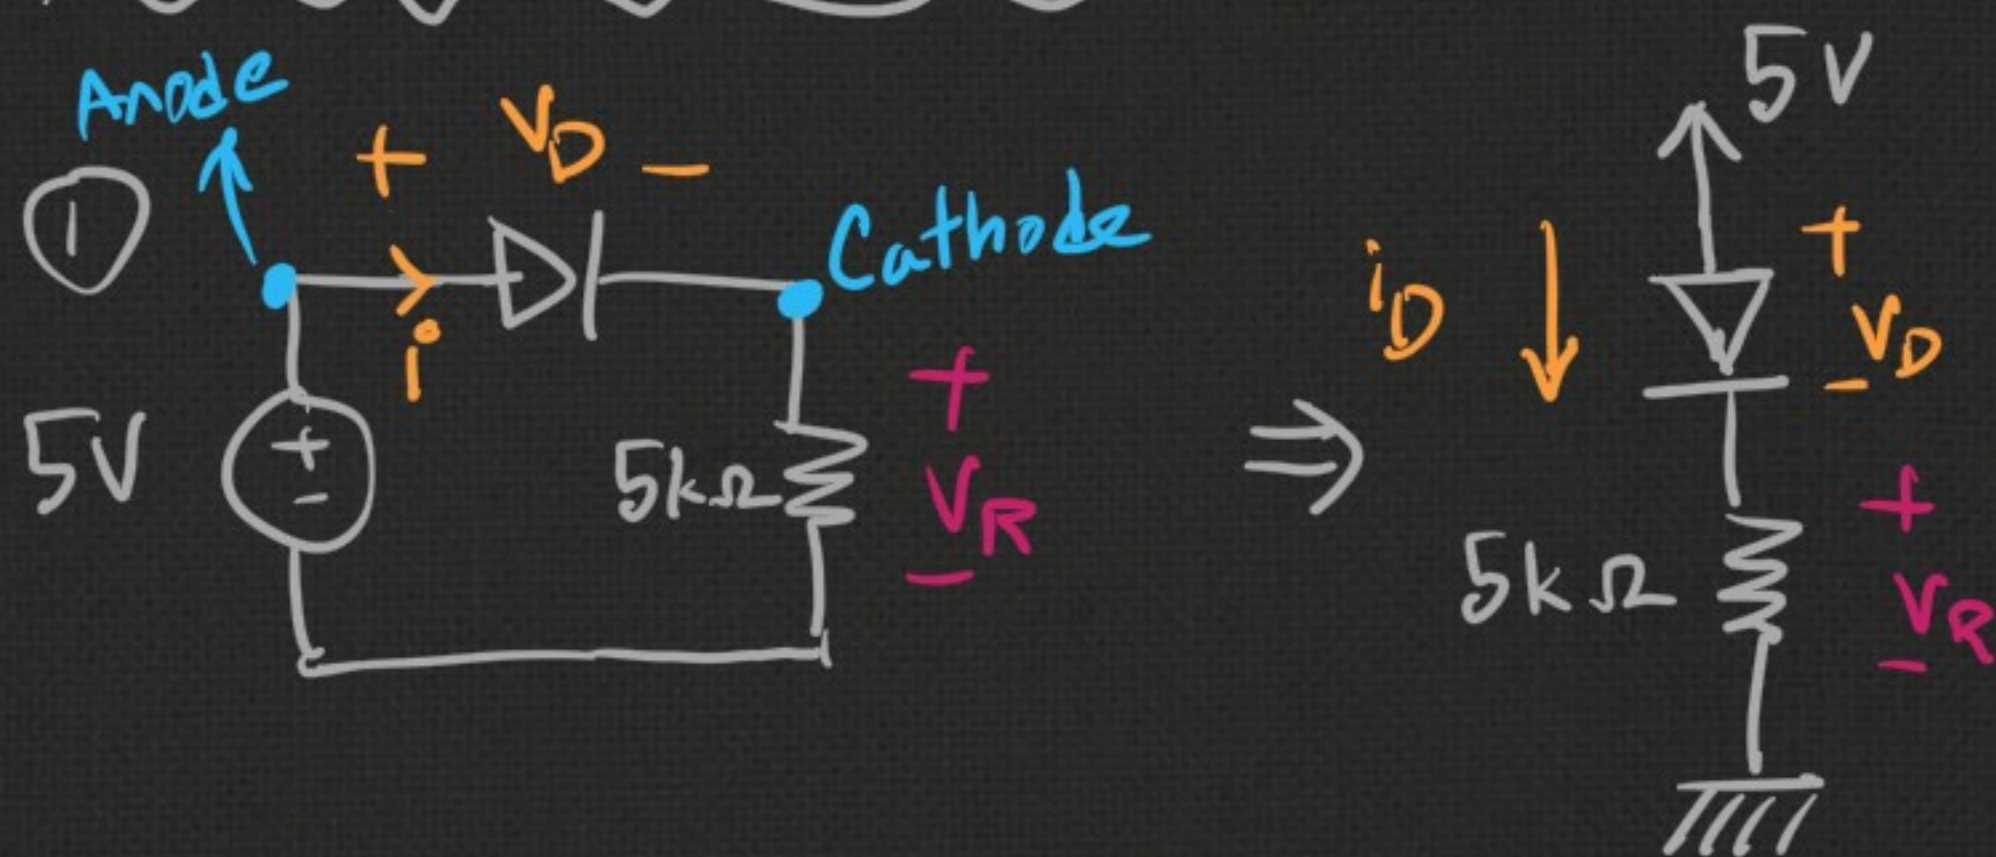 Anode
+ V_D -
①
Cathode
i
5V
+
-
5kΩ
+
V_R
-
⇒
5V
i_D
+
V_D
-
5kΩ
+
V_R
-